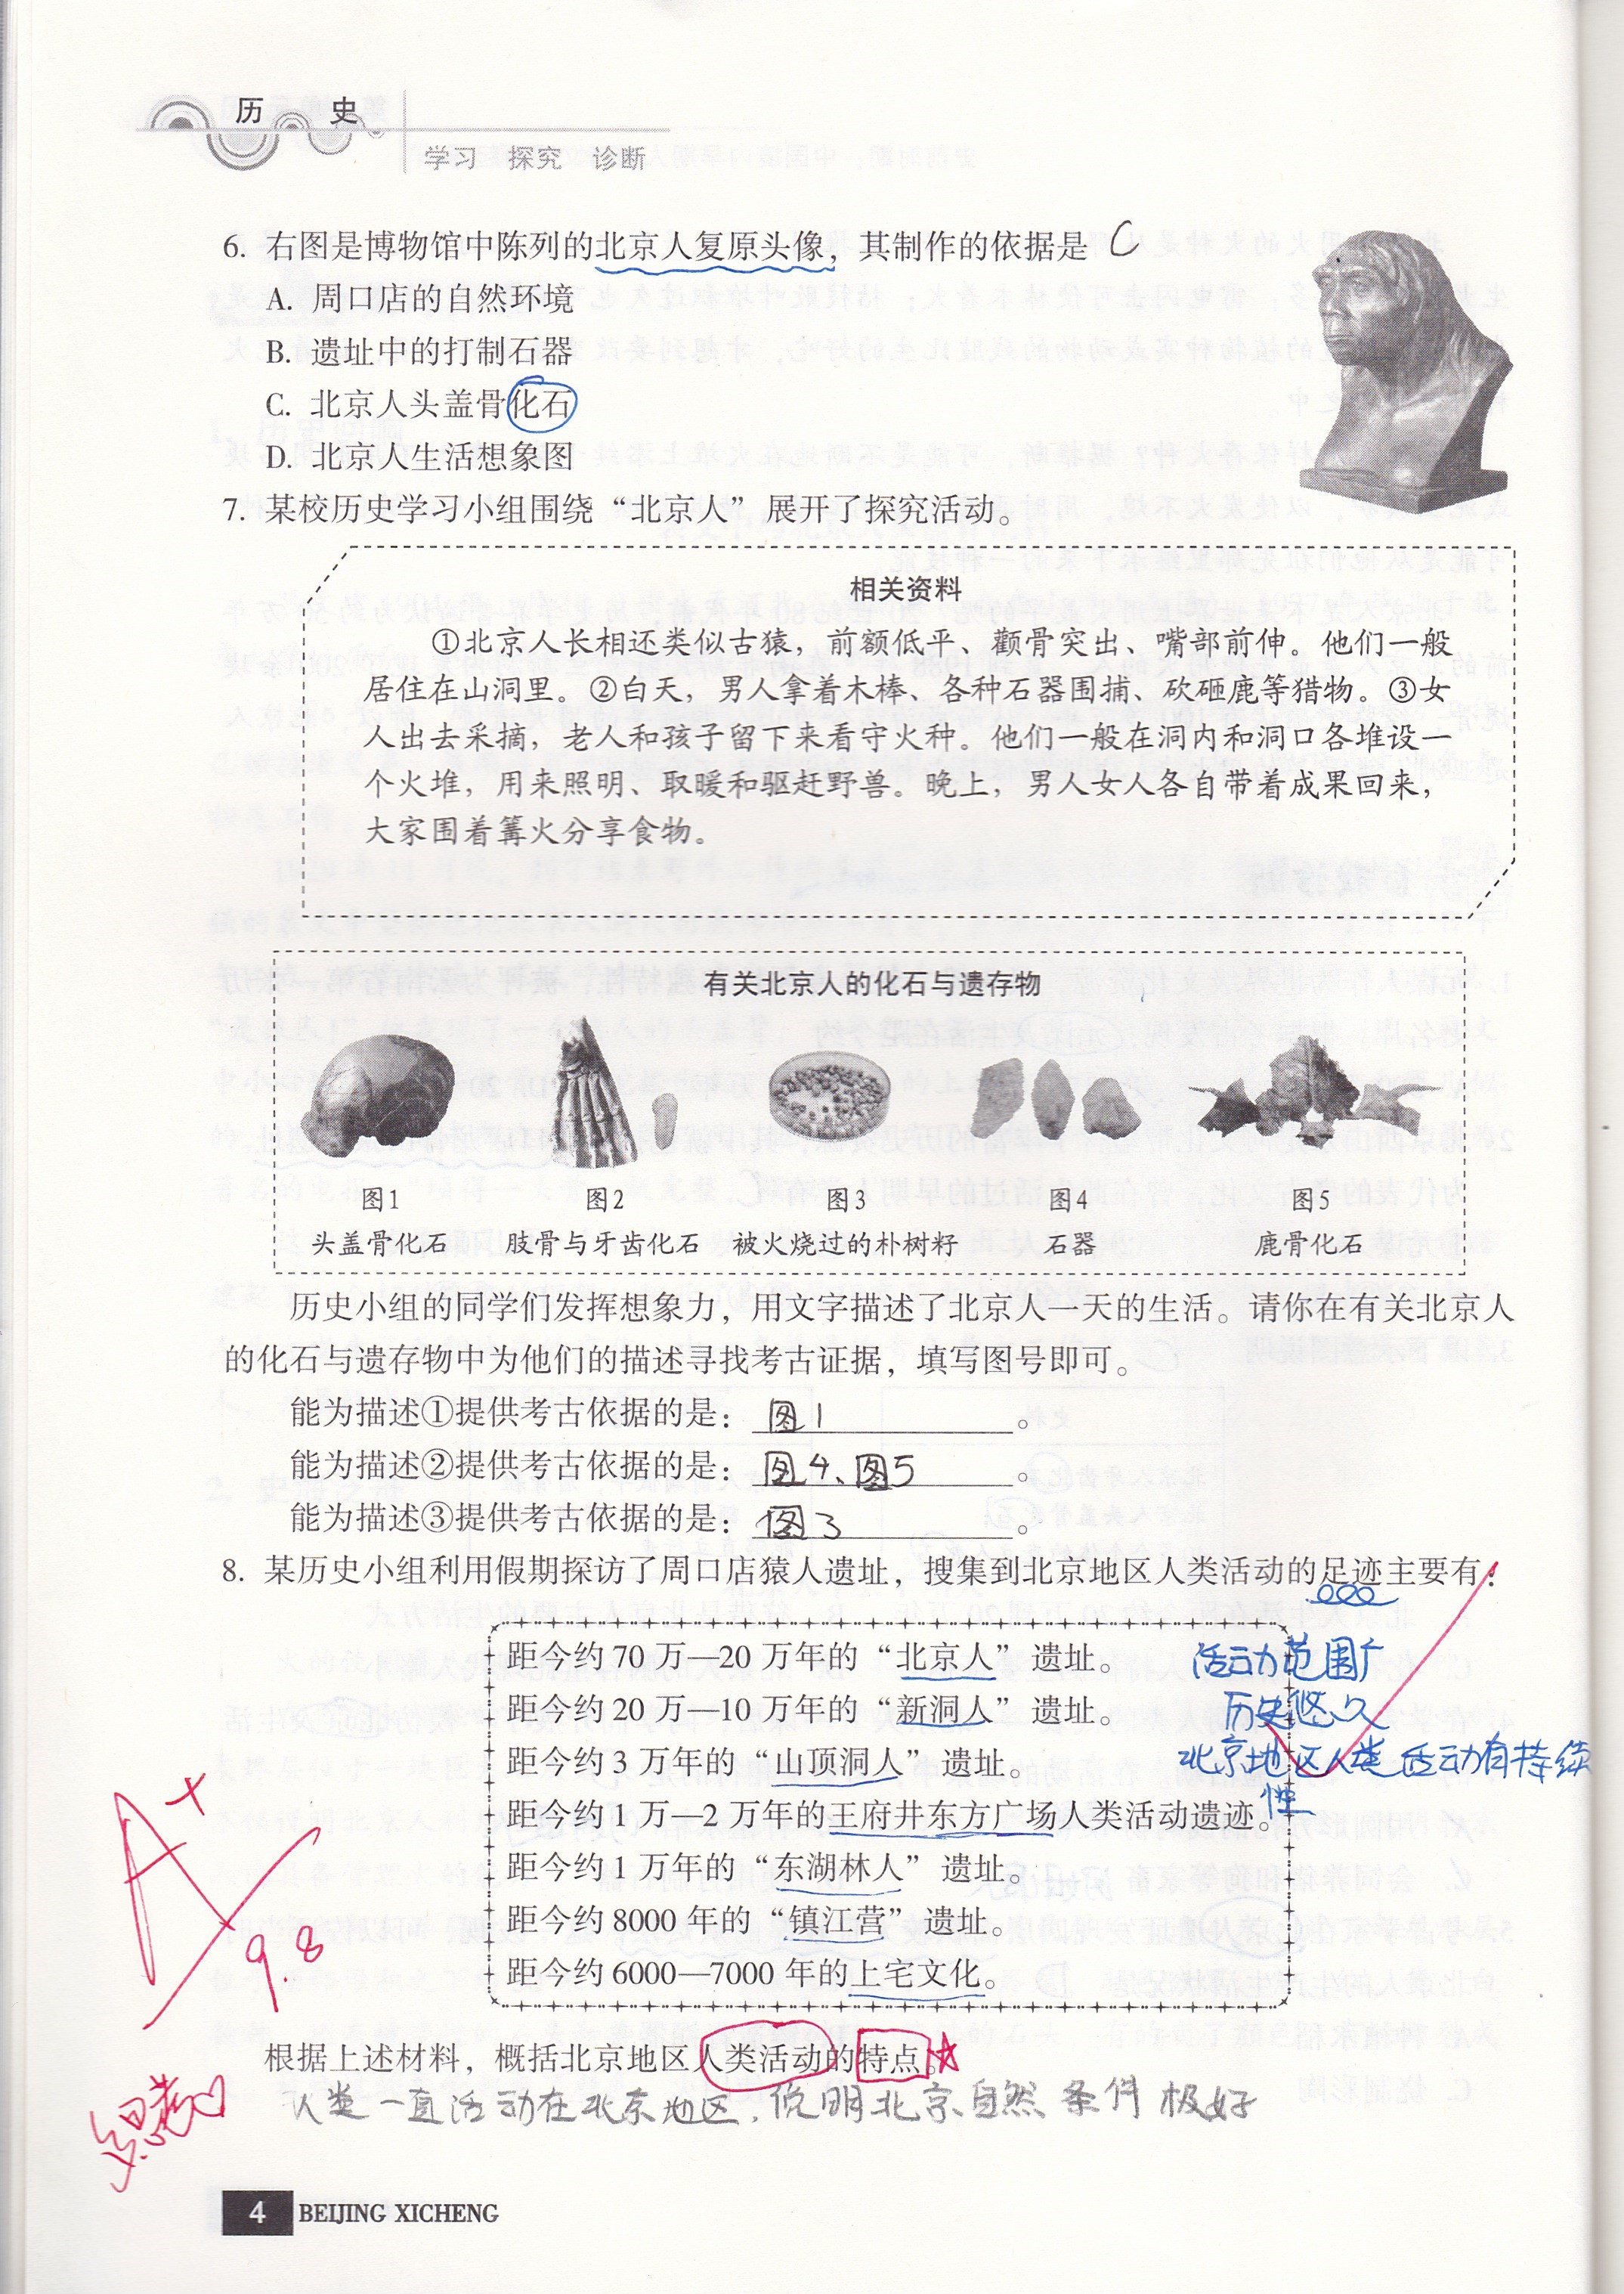 历 史
学习 探究 诊断
6. 右图是博物馆中陈列的北京人复原头像，其制作的依据是 C
A. 周口店的自然环境
B. 遗址中的打制石器
C. 北京人头盖骨化石
D. 北京人生活想象图
7. 某校历史学习小组围绕“北京人”展开了探究活动。
相关资料
①北京人长相还类似古猿，前额低平、颧骨突出、嘴部前伸。他们一般
居住在山洞里。②白天，男人拿着木棒、各种石器围捕、砍砸鹿等猎物。③女
人出去采摘，老人和孩子留下来看守火种。他们一般在洞内和洞口各堆设一
个火堆，用来照明、取暖和驱赶野兽。晚上，男人女人各自带着成果回来，
大家围着篝火分享食物。
有关北京人的化石与遗存物
图1 图2 图3 图4 图5
头盖骨化石 肢骨与牙齿化石 被火烧过的朴树籽 石器 鹿骨化石
历史小组的同学们发挥想象力，用文字描述了北京人一天的生活。请你在有关北京人
的化石与遗存物中为他们的描述寻找考古证据，填写图号即可。
能为描述①提供考古依据的是：图1。
能为描述②提供考古依据的是：图4、图5。
能为描述③提供考古依据的是：图3。
8. 某历史小组利用假期探访了周口店猿人遗址，搜集到北京地区人类活动的足迹主要有：
距今约 70 万—20 万年的“北京人”遗址。
距今约 20 万—10 万年的“新洞人”遗址。
距今约 3 万年的“山顶洞人”遗址。
距今约 1 万—2 万年的王府井东方广场人类活动遗迹。
距今约 1 万年的“东湖林人”遗址。
距今约 8000 年的“镇江营”遗址。
距今约 6000—7000 年的上宅文化。
活动范围广
历史悠久
北京地区人类活动有持续
性
A+
9.8
根据上述材料，概括北京地区人类活动的特点。
人类一直活动在北京地区，说明北京自然条件极好
4 BEIJING XICHENG